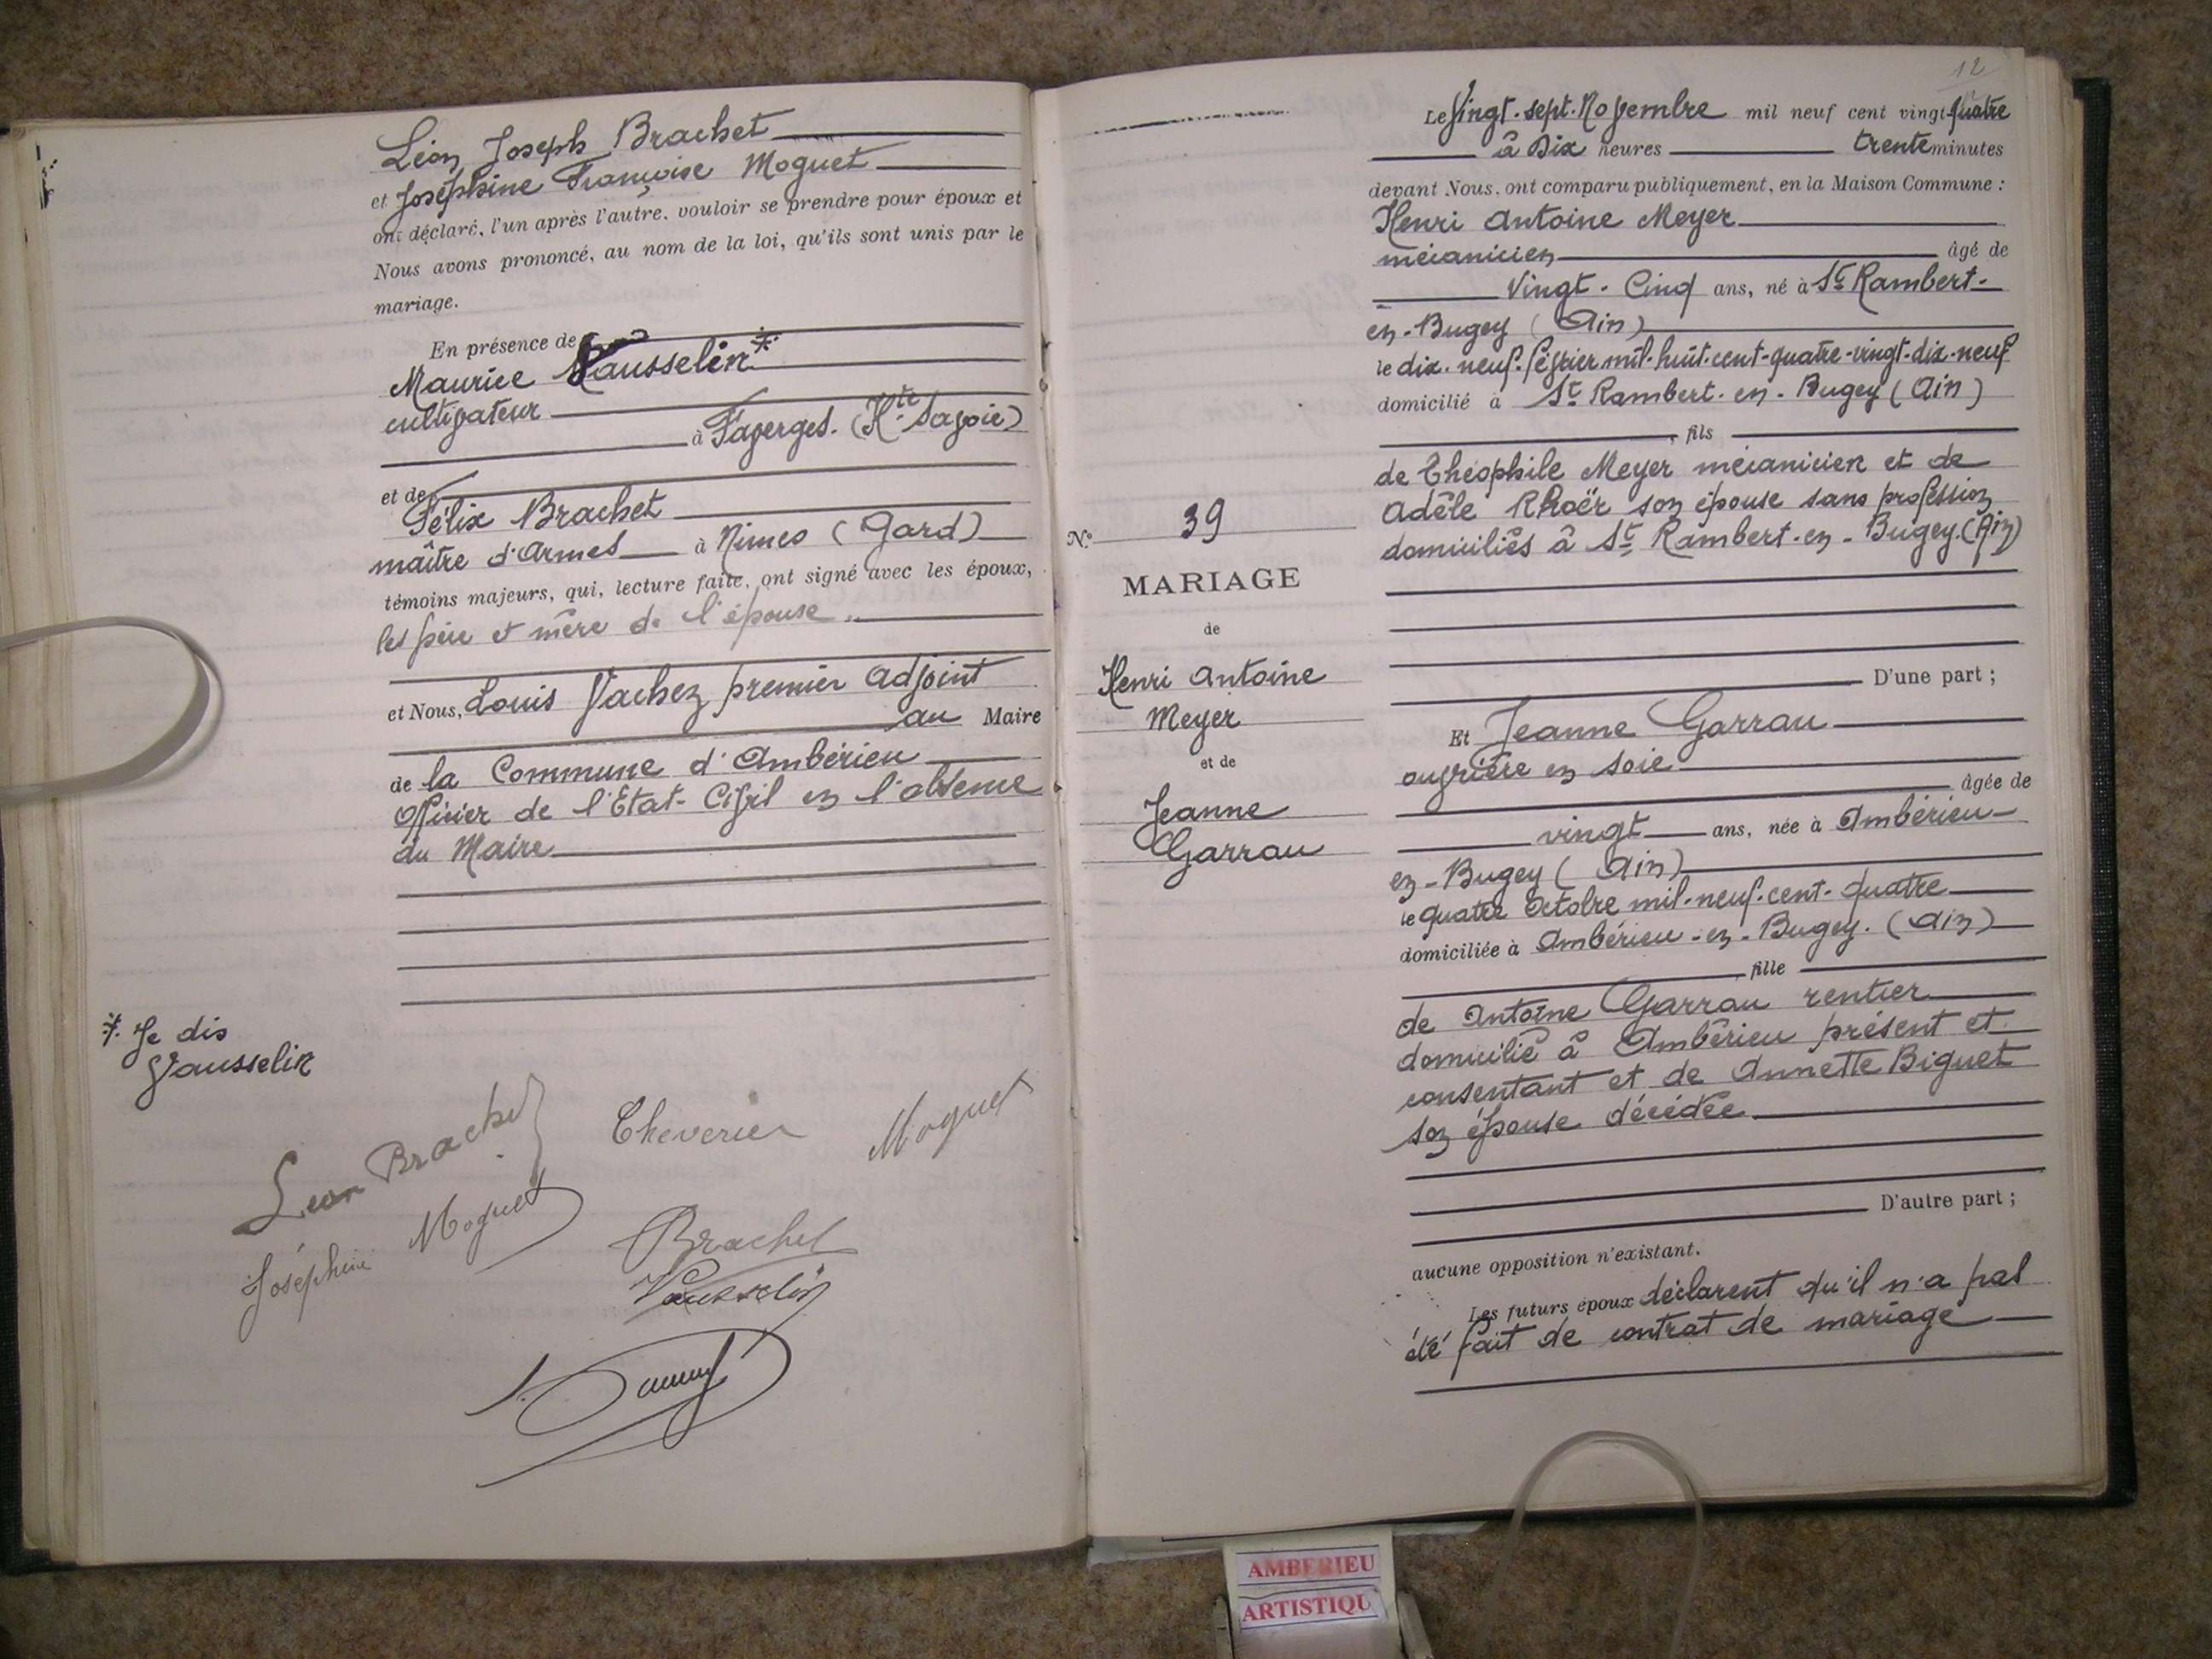 Léon Joseph Brachet
et Joséphine Françoise Moguet
ont déclaré, l'un après l'autre, vouloir se prendre pour époux et
Nous avons prononcé, au nom de la loi, qu'ils sont unis par le
mariage.
En présence de
Maurice Vausselin *
cultivateur
à Faverges. (Hte Savoie)
et de
Félix Brachet
maître d'Armes à Nimes (Gard)
témoins majeurs, qui, lecture faite, ont signé avec les époux,
les père et mère de l'épouse
et Nous, Louis Vachez premier adjoint
au Maire
de la Commune d'Ambérieu
Officier de l'Etat-Civil en l'absence
du Maire
*. Je dis
Vausselin
Leon Brachet
Cheverier
Moguet
Joséphine Moguet
Brachet
Vausselin
12
Le Vingt-sept-Novembre mil neuf cent vingt quatre
à Dix heures trente minutes
devant Nous, ont comparu publiquement, en la Maison Commune :
Henri Antoine Meyer
mécanicien âgé de
Vingt-Cinq ans, né à St Rambert-
en-Bugey (Ain)
le dix-neuf-février mil-huit-cent-quatre-vingt-dix-neuf
domicilié à St Rambert-en-Bugey (Ain)
, fils
de Théophile Meyer mécanicien et de
Adèle Rhoër son épouse sans profession
domiciliés à St Rambert-en-Bugey.(Ain)
D'une part ;
Et Jeanne Garrau
ouvrière en soie
âgée de
vingt ans, née à Ambérieu-
en-Bugey (Ain)
le quatre Octobre mil-neuf-cent-quatre
domiciliée à Ambérieu-en-Bugey. (Ain)
, fille
de Antoine Garrau rentier
domicilié à Ambérieu présent et
consentant et de Annette Biguet
son épouse décédée
D'autre part ;
aucune opposition n'existant.
Les futurs époux déclarent qu'il n'a pas
été fait de contrat de mariage
No 39
MARIAGE
de
Henri Antoine
Meyer
et de
Jeanne
Garrau
AMBERIEU
ARTISTIQU